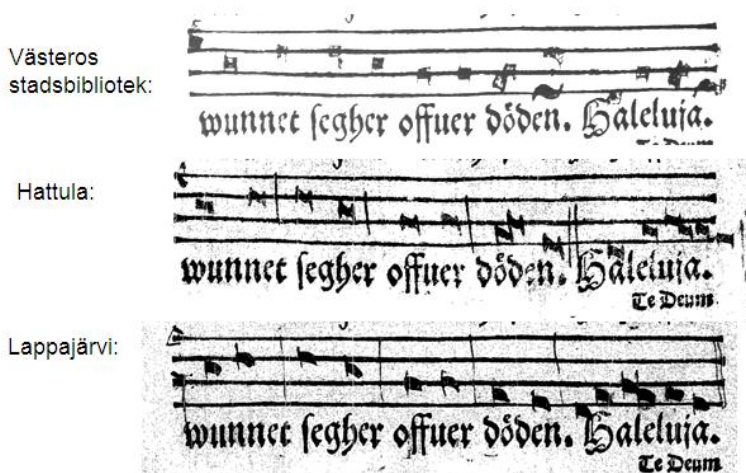 Västeros
stadsbibliotek:
wunnet segher offuer döden. Haleluja.
Te Deum
Hattula:
wunnet segher offuer döden. Haleluja.
Te Deum.
Lappajärvi:
wunnet segher offuer döden. Haleluja.
Te Deum